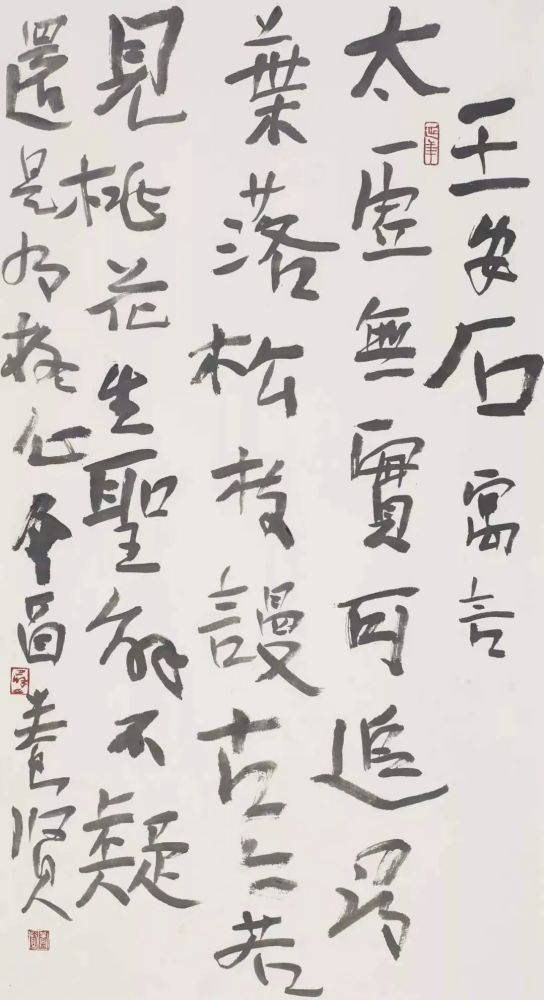 王安石 寓言
太虛無實可追尋
葉落松枝謾古今若
見桃花生聖解不疑
還是有疑心 賢